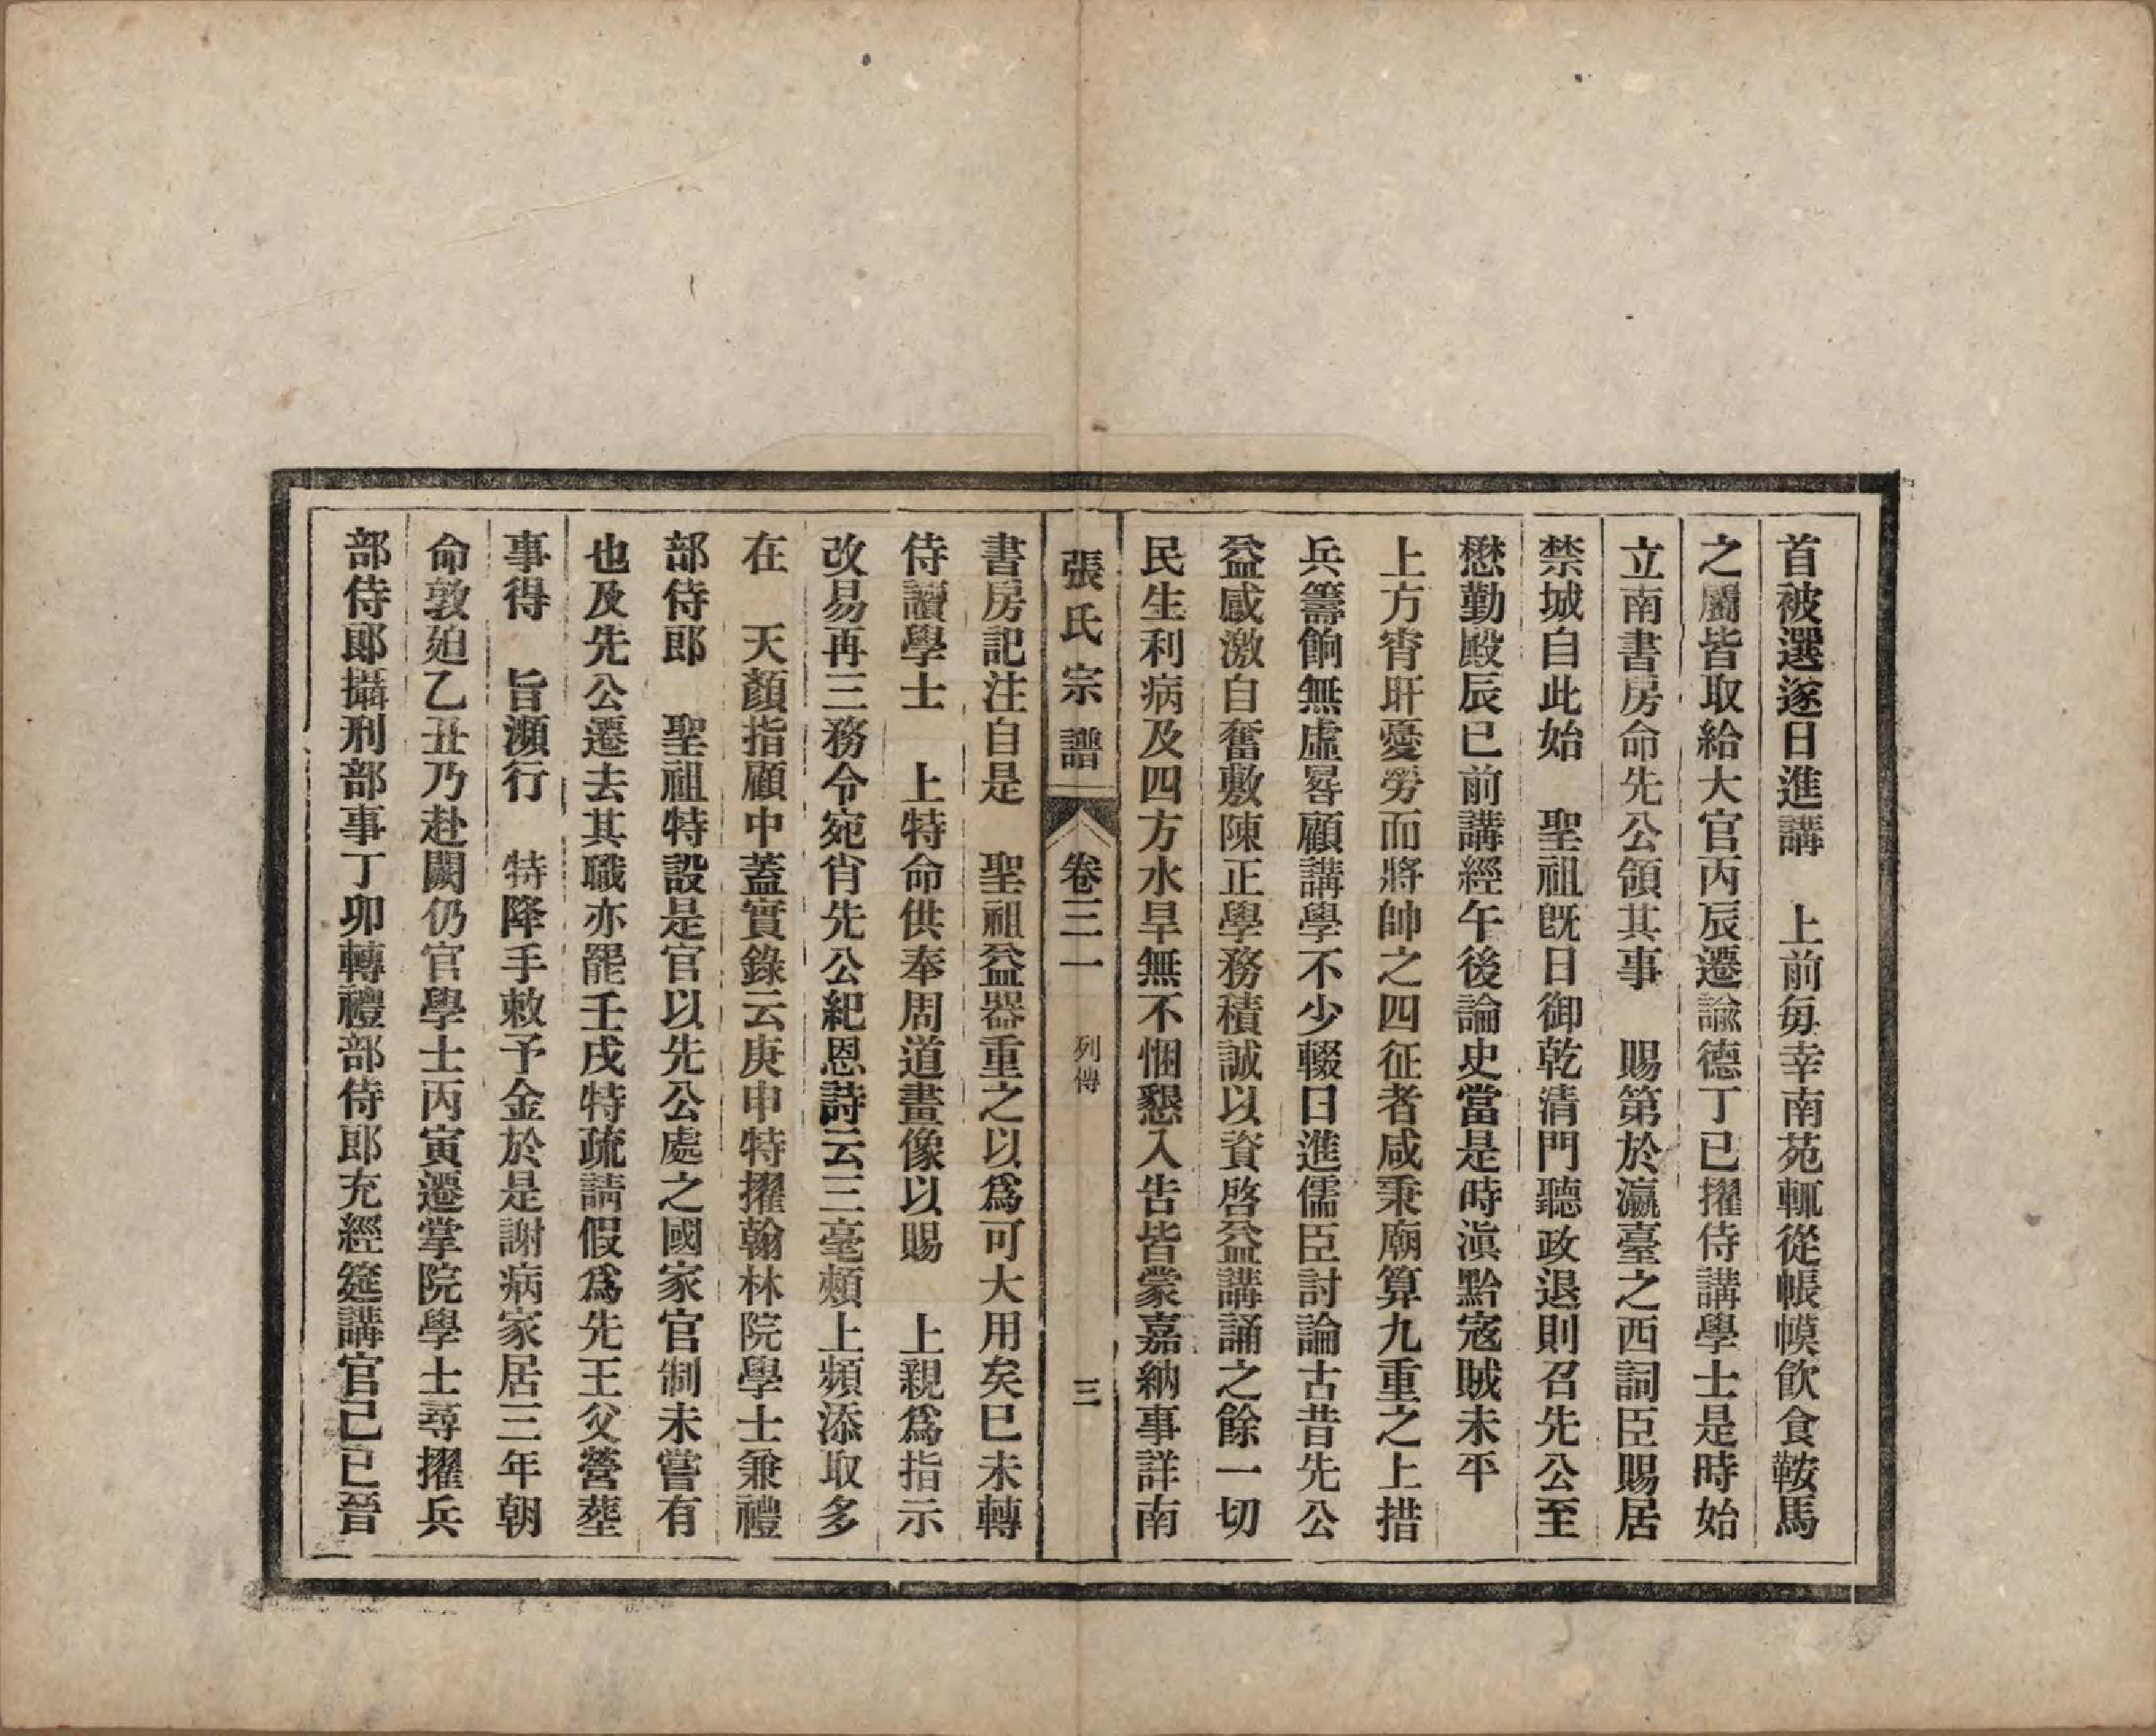 首被選遂日進講　上前每幸南苑輒從帳幙飲食鞍馬
之屬皆取給大官丙辰遷諭德丁巳擢侍講學士是時始
立南書房命先公領其事　賜第於瀛臺之西詞臣賜居
禁城自此始　聖祖旣日御乾淸門聽政退則召先公至
懋勤殿辰巳前講經午後論史當是時滇黔寇賊未平
上方宵旰憂勞而將帥之四征者咸秉廟算九重之上措
兵籌餉無虛晷顧講學不少輟日進儒臣討論古昔先公
益感激自奮敷陳正學務積誠以資啓益講誦之餘一切
民生利病及四方水旱無不悃懇入告皆蒙嘉納事詳南
張氏宗譜　卷三一　列傳　三
書房記注自是　聖祖益器重之以爲可大用矣巳未轉
侍讀學士　上特命供奉周道畫像以賜　上親爲指示
改易再三務令宛肖先公紀恩詩云三毫頰上頻添取多
在　天顏指顧中蓋實錄云庚申特擢翰林院學士兼禮
部侍郎　聖祖特設是官以先公處之國家官制未嘗有
也及先公遷去其職亦罷壬戌特疏請假爲先王父營塟
事得　旨瀕行　特降手敕予金於是謝病家居三年朝
命敦廹乙丑乃赴闕仍官學士丙寅遷掌院學士尋擢兵
部侍郎攝刑部事丁卯轉禮部侍郎充經筵講官己巳晉